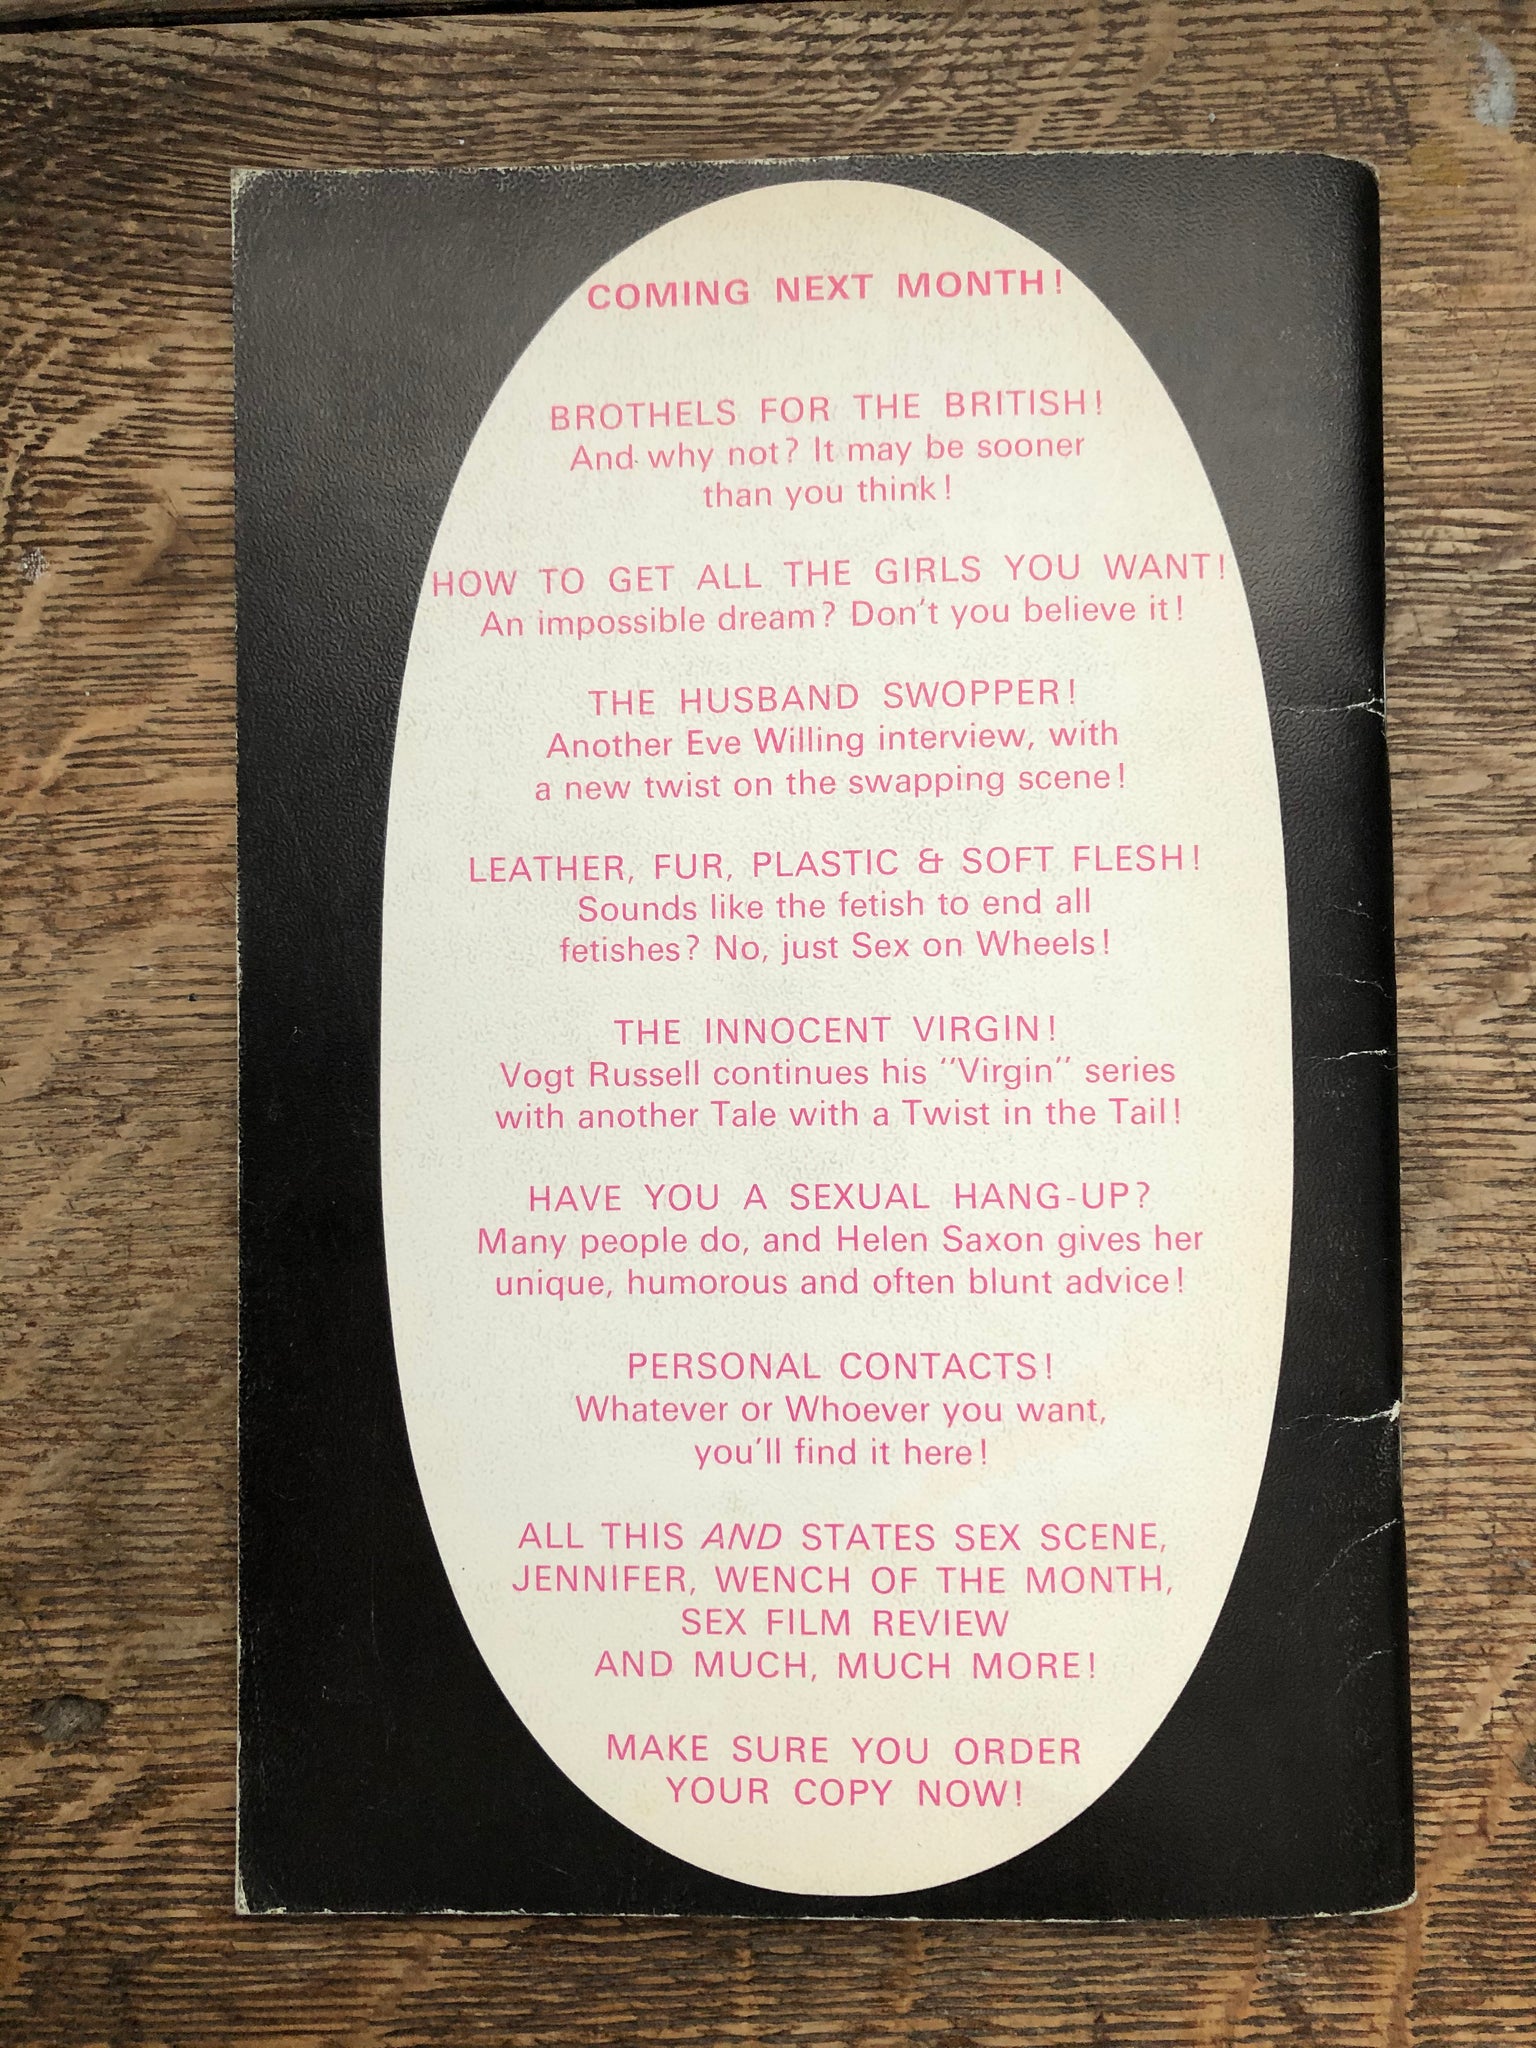 COMING NEXT MONTH!
BROTHELS FOR THE BRITISH!
And why not? It may be sooner
than you think!
HOW TO GET ALL THE GIRLS YOU WANT!
An impossible dream? Don't you believe it!
THE HUSBAND SWOPPER!
Another Eve Willing interview, with
a new twist on the swapping scene!
LEATHER, FUR, PLASTIC & SOFT FLESH!
Sounds like the fetish to end all
fetishes? No, just Sex on Wheels!
THE INNOCENT VIRGIN!
Vogt Russell continues his "Virgin" series
with another Tale with a Twist in the Tail!
HAVE YOU A SEXUAL HANG-UP?
Many people do, and Helen Saxon gives her
unique, humorous and often blunt advice!
PERSONAL CONTACTS!
Whatever or Whoever you want,
you'll find it here!
ALL THIS AND STATES SEX SCENE,
JENNIFER, WENCH OF THE MONTH,
SEX FILM REVIEW
AND MUCH, MUCH MORE!
MAKE SURE YOU ORDER
YOUR COPY NOW!